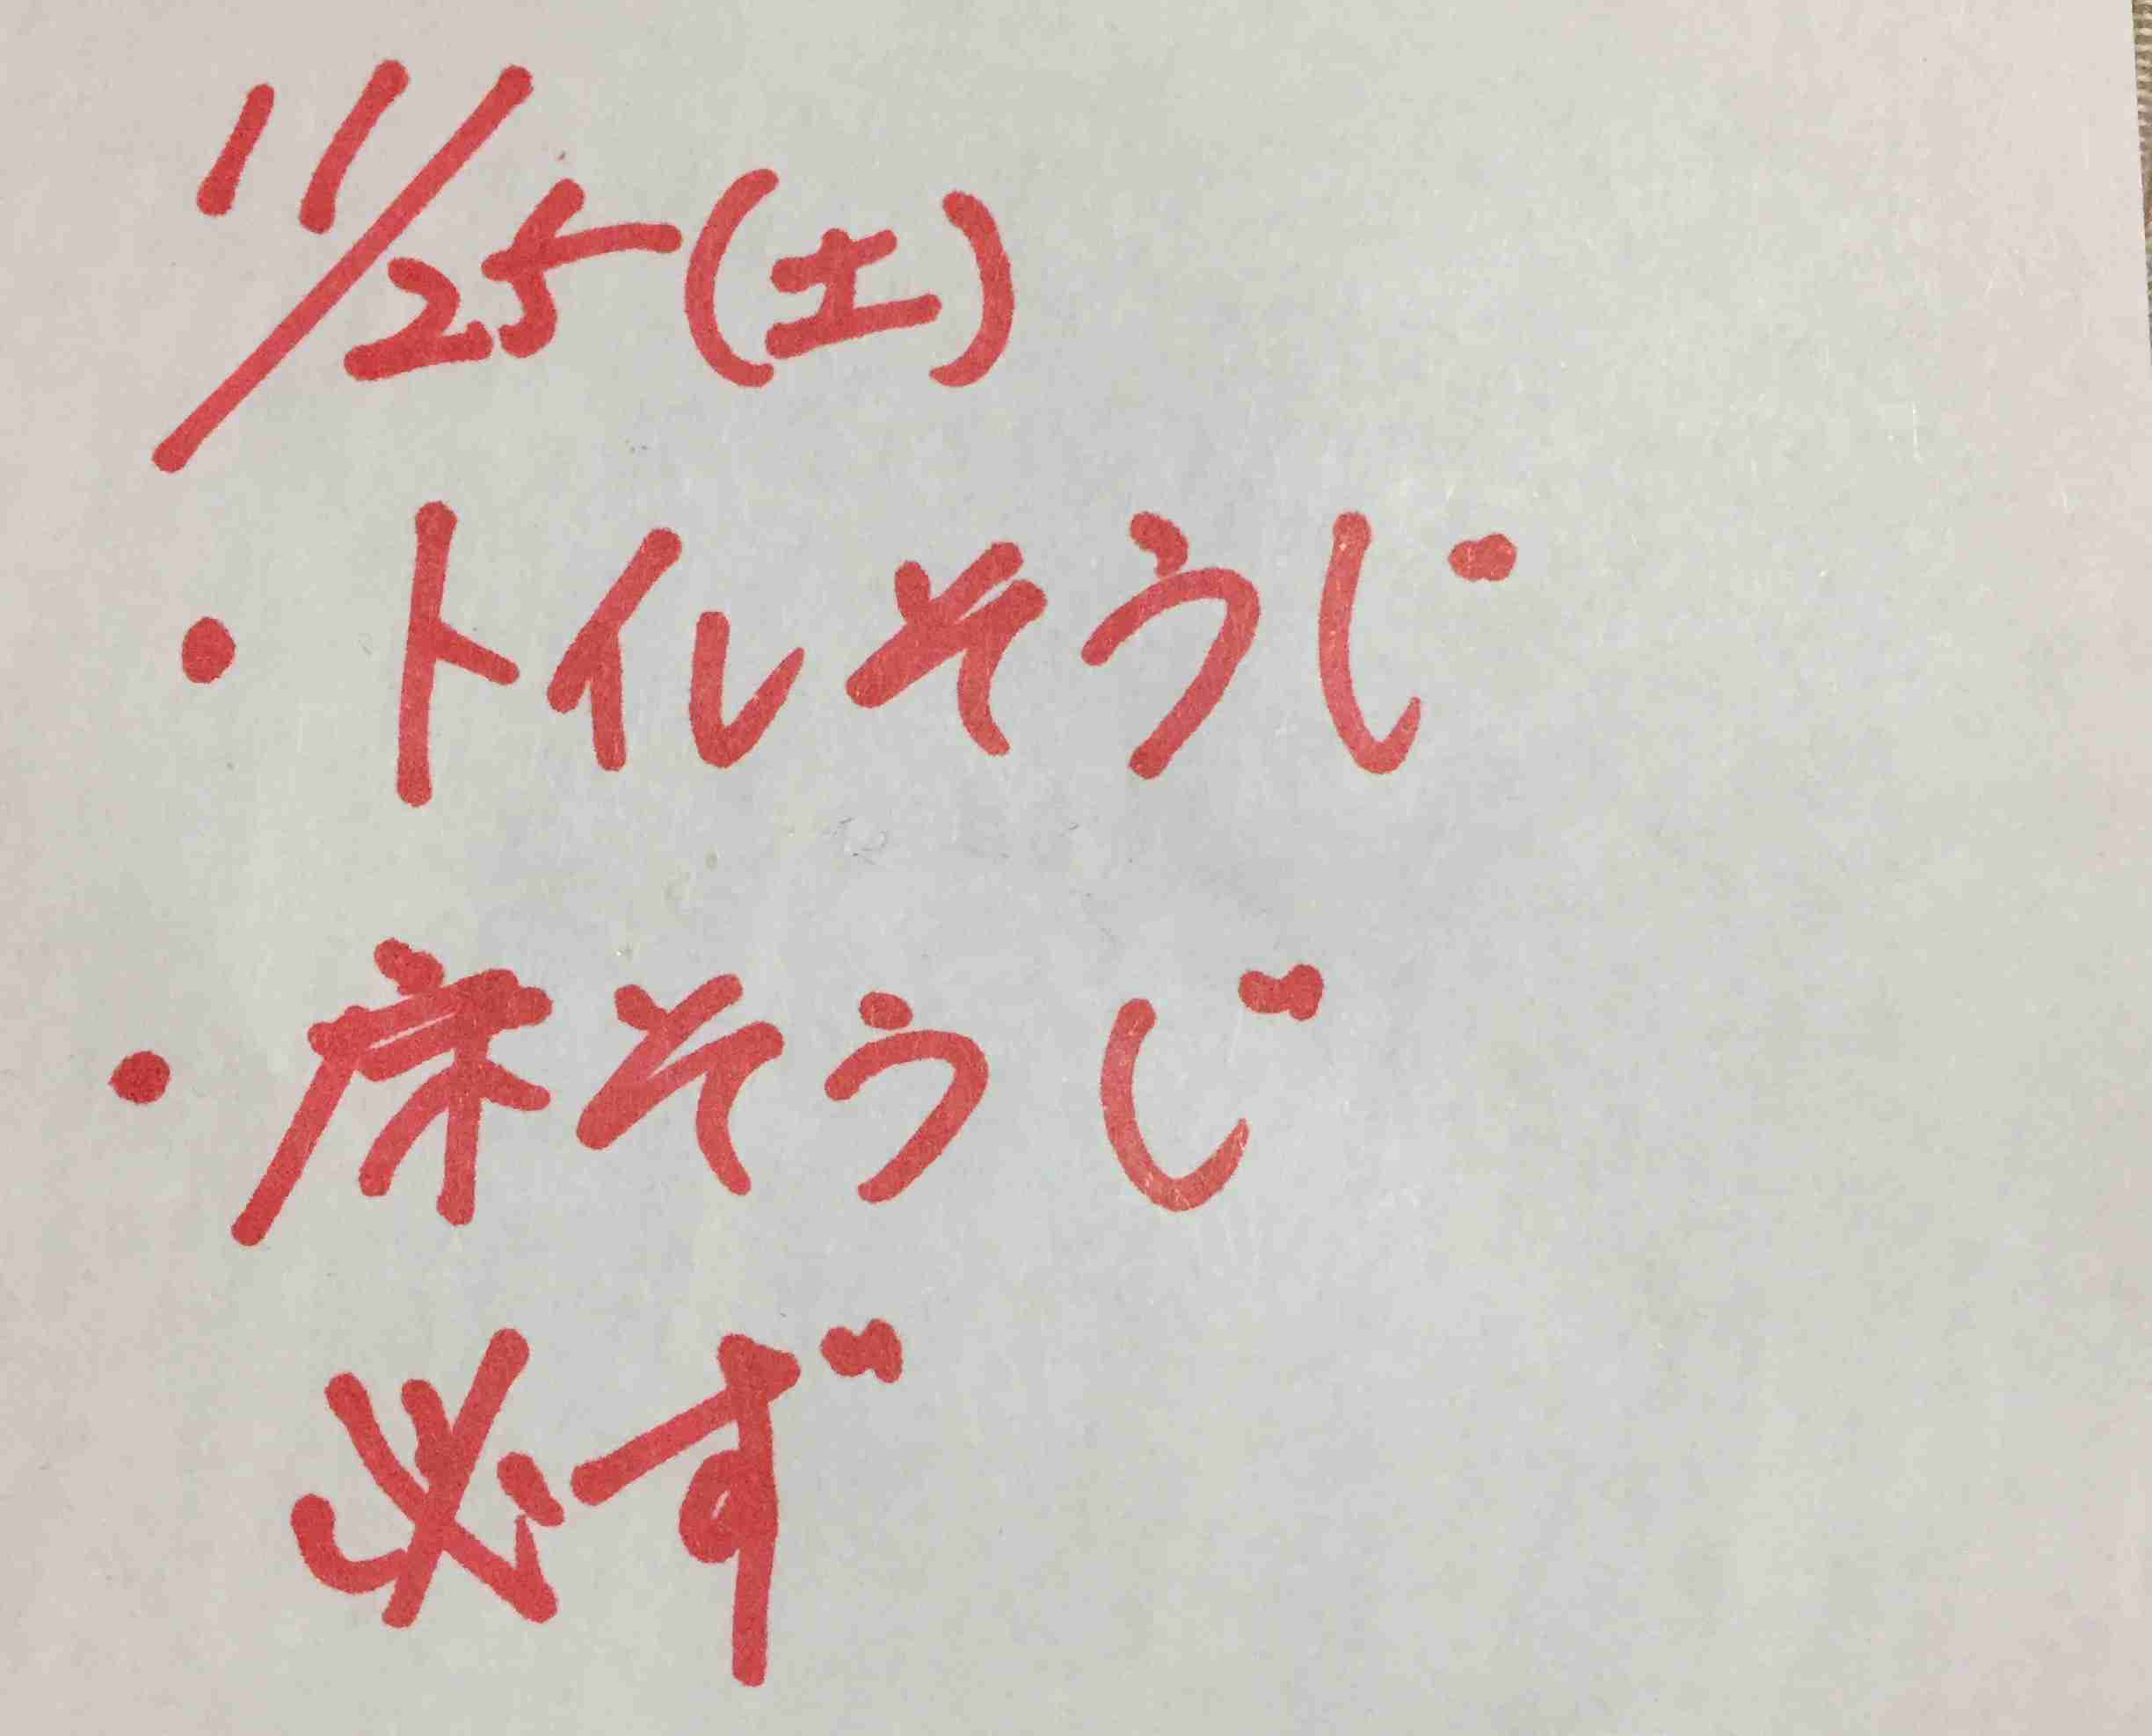 11/25(土)
・トイレそうじ
・床そうじ
必ず